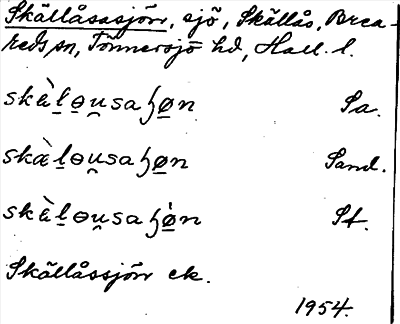 Skällåsasjön, sjö, Skällås, Brea-
reds sn, Tönnersjö hd, Hall. l.
skæ̀l̠ɵu̯saɧø̠n Sa.
skæ̀l̠ɵu̯saɧø̠n Sand.
skæ̀l̠ɵu̯saɧø̠̀n St.
Skällåssjön ek.
1954.